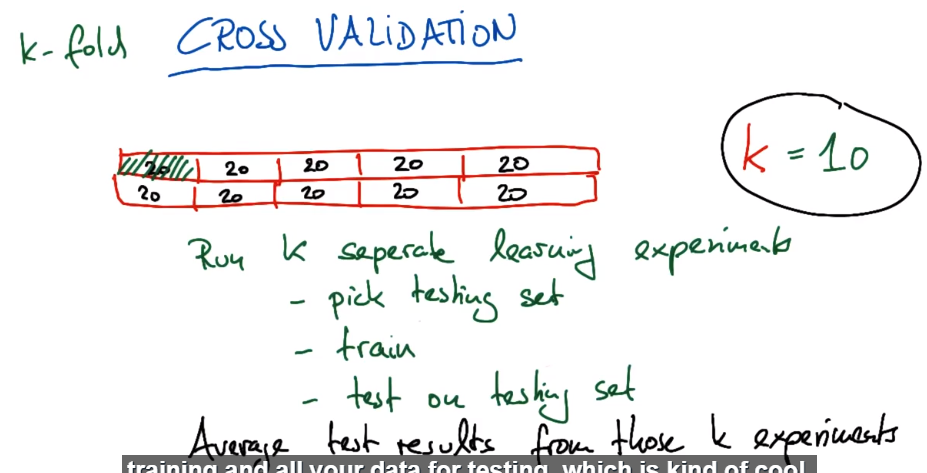 k-fold CROSS VALIDATION
20 20 20 20 20
20 20 20 20 20
k = 10
Run k seperate learning experiments
- pick testing set
- train
- test on testing set
Average test results from those k experiments
training and all your data for testing, which is kind of cool.